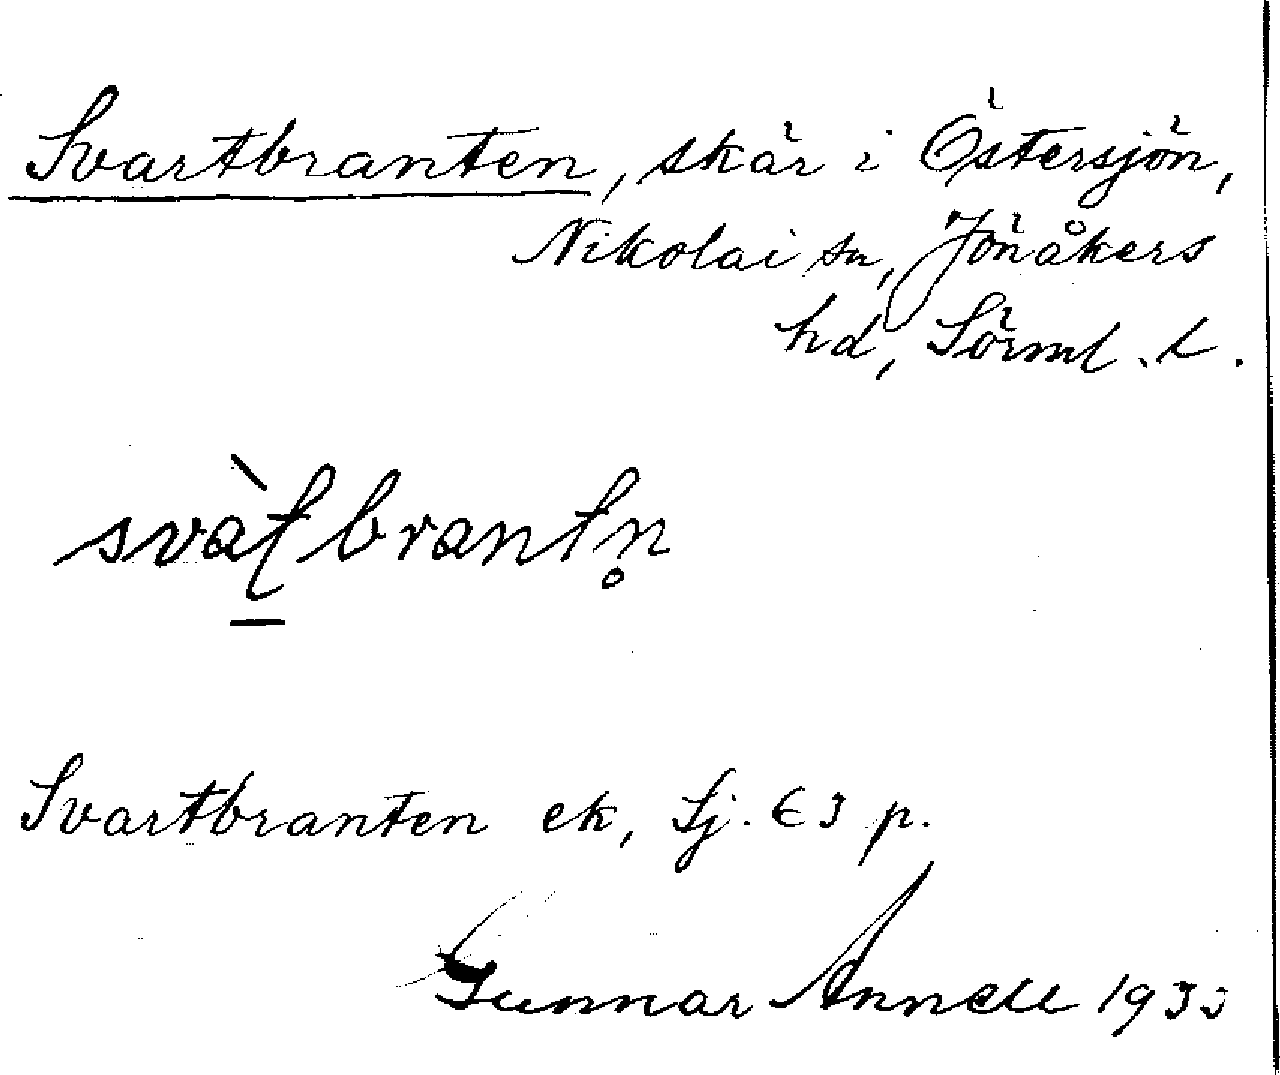 Svartbranten, skär i Östersjön,
Nikolai sn, Jönåkers
hd, Sörml. l.
svàʈbrantn̥
Svartbranten ek, Sj. E3 p.
Gunnar Annell 1933